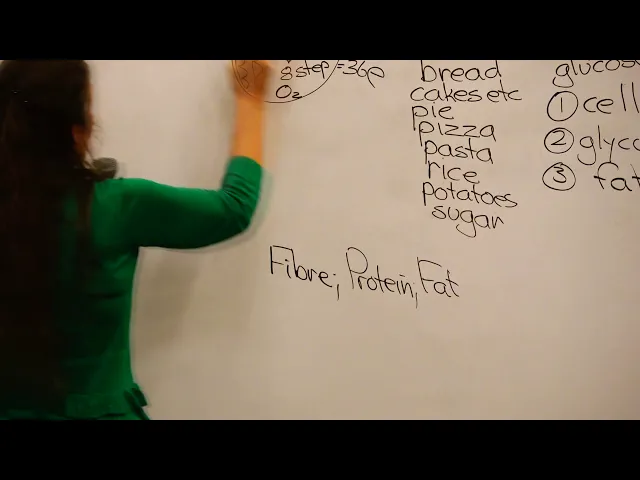 8 step = 36p
O₂
bread
cakes etc
pie
pizza
pasta
rice
potatoes
sugar
glucos
① cell
② glyco
③ fat
Fibre; Protein; Fat